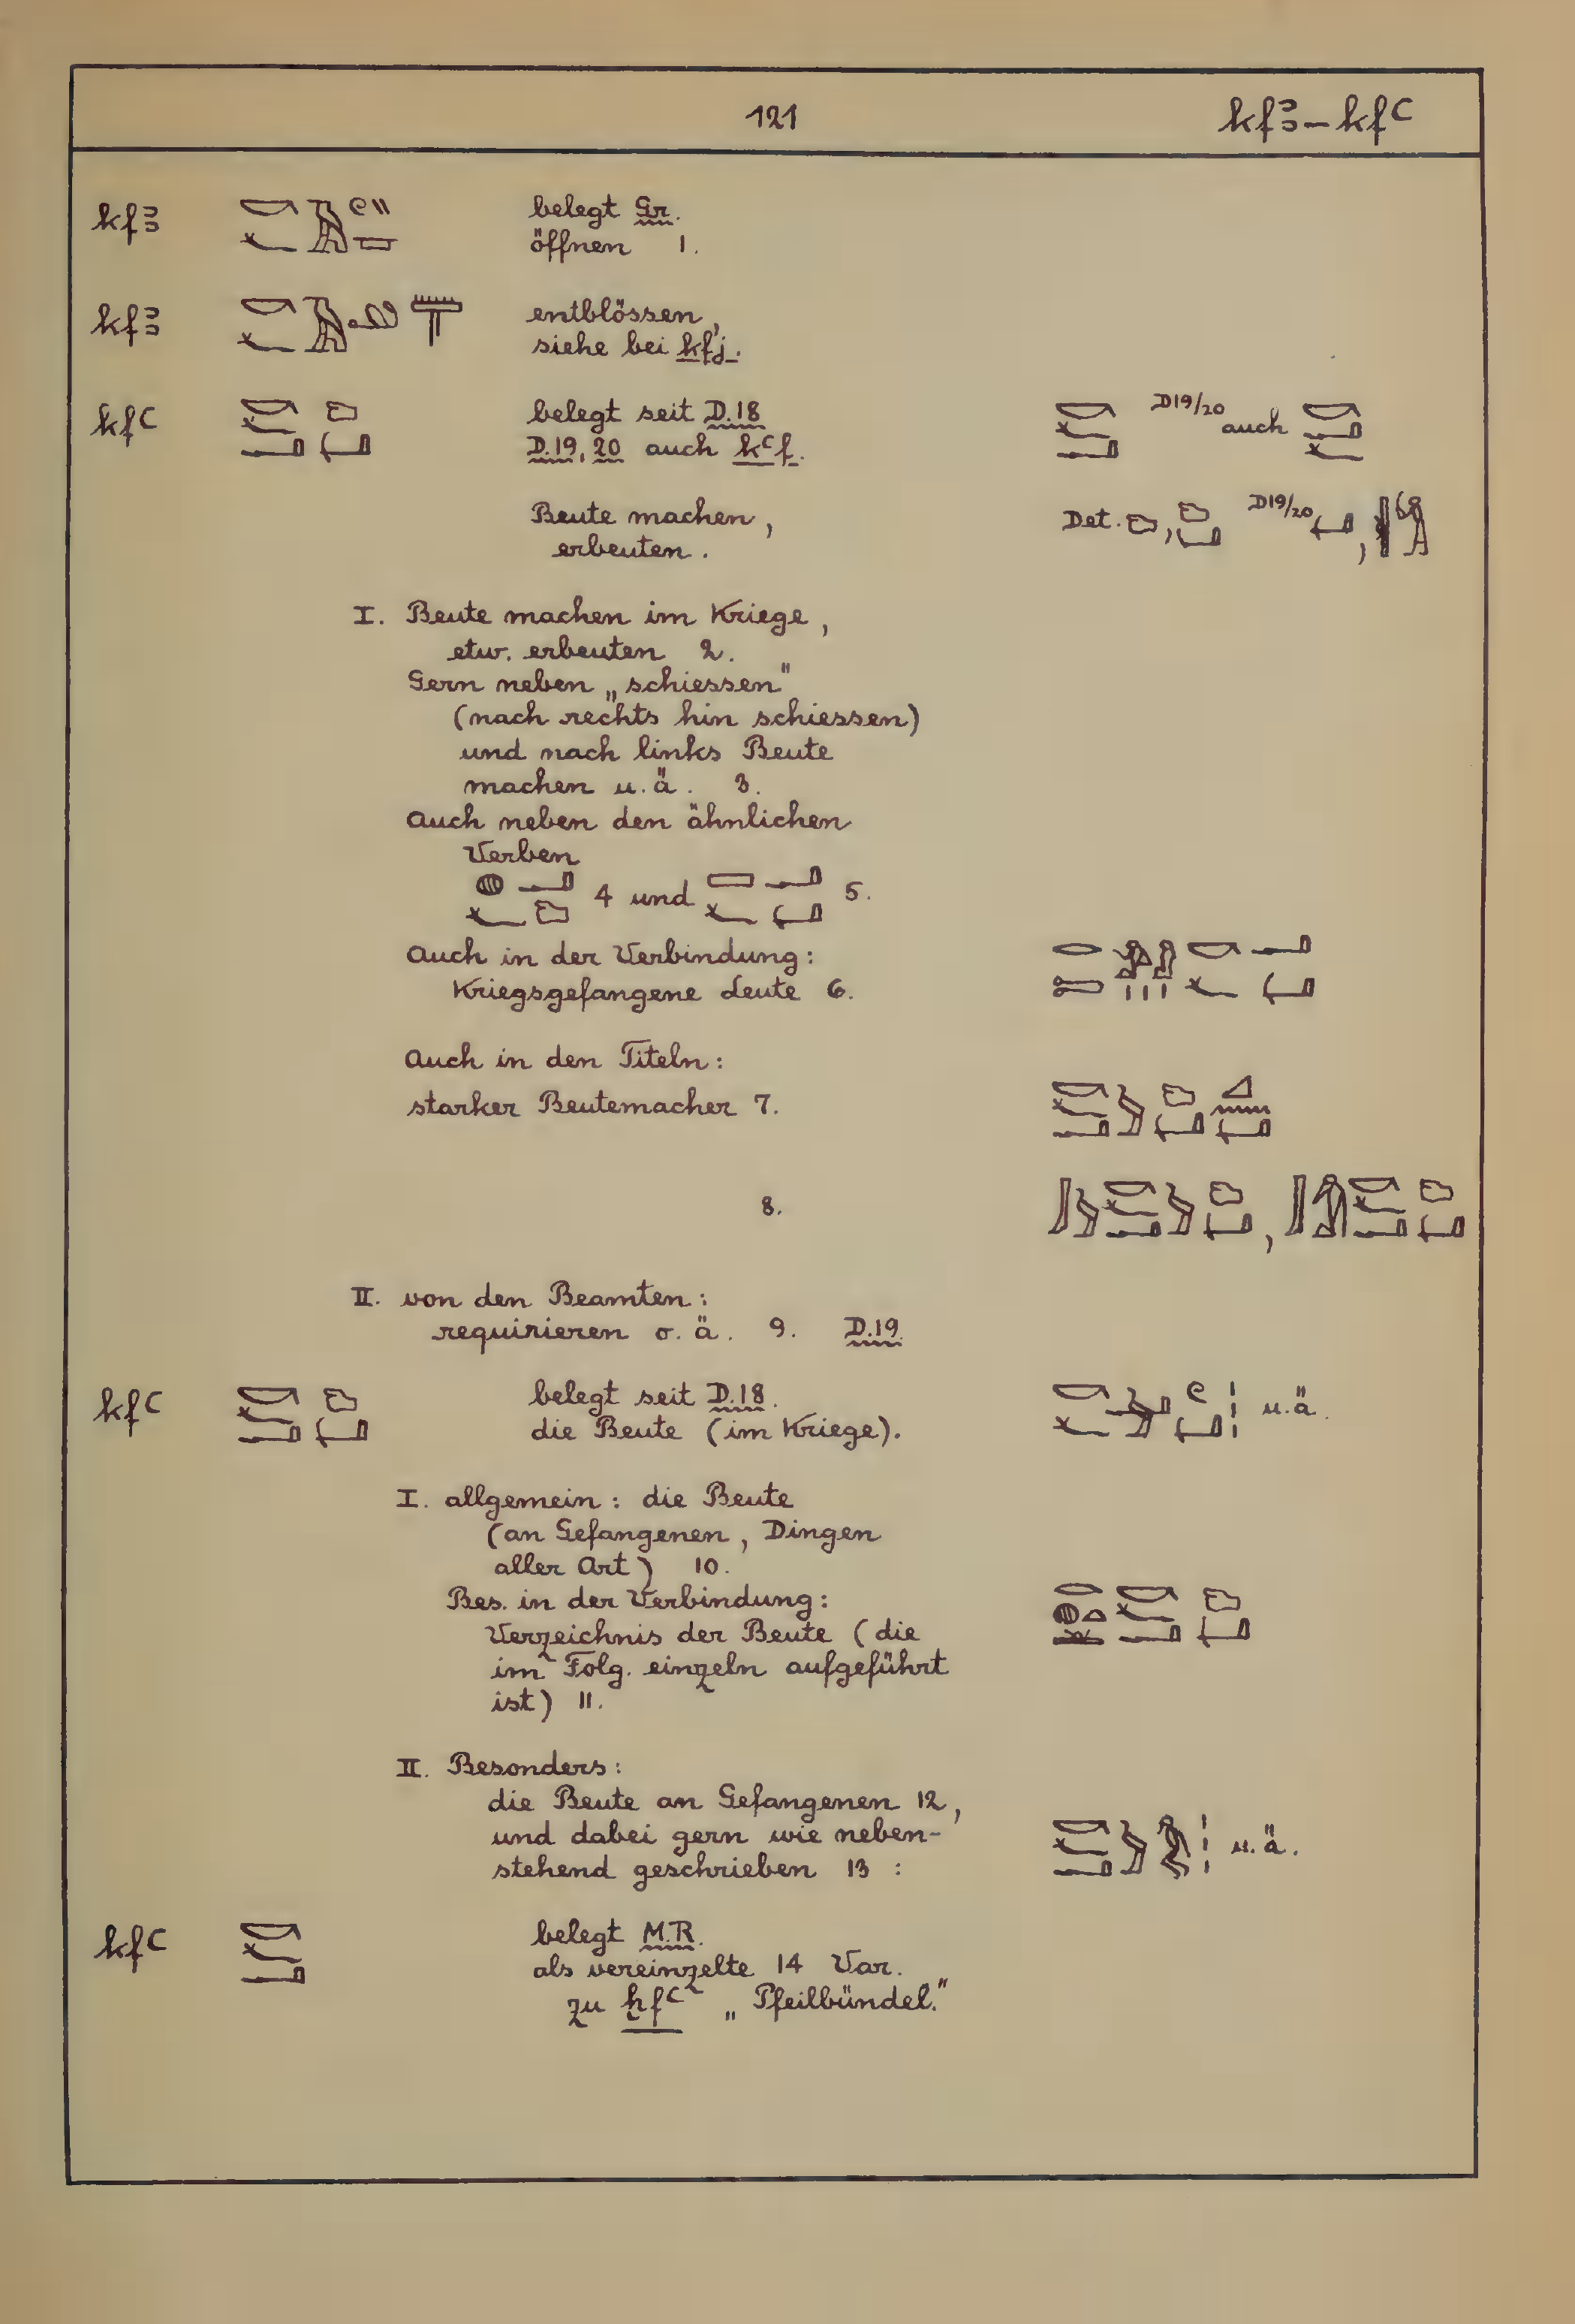 121 kfꜣ-kfꜥ
kfꜣ belegt Gr.
öffnen 1.
kfꜣ entblössen,
siehe bei kfj.
kfꜥ belegt seit D.18 D19/20 auch
D.19, 20 auch kꜥf.
Beute machen, Det. , D19/20 ,
erbeuten.
I. Beute machen im Kriege,
etw. erbeuten 2.
Gern neben „schiessen"
(nach rechts hin schiessen)
und nach links Beute
machen u.ä. 3.
Auch neben den ähnlichen
Verben
4 und 5.
Auch in der Verbindung:
Kriegsgefangene Leute 6.
Auch in den Titeln:
starker Beutemacher 7.
8. ,
II. von den Beamten:
requirieren o.ä. 9. D.19.
kfꜥ belegt seit D.18. u.ä.
die Beute (im Kriege).
I. allgemein: die Beute
(an Gefangenen, Dingen
aller Art) 10.
Bes. in der Verbindung:
Verzeichnis der Beute (die
im Folg. einzeln aufgeführt
ist) 11.
II. Besonders:
die Beute an Gefangenen 12,
und dabei gern wie neben-
stehend geschrieben 13 : u.ä.
kfꜥ belegt M.R.
als vereinzelte 14 Var.
zu ẖfꜥ „Pfeilbündel."